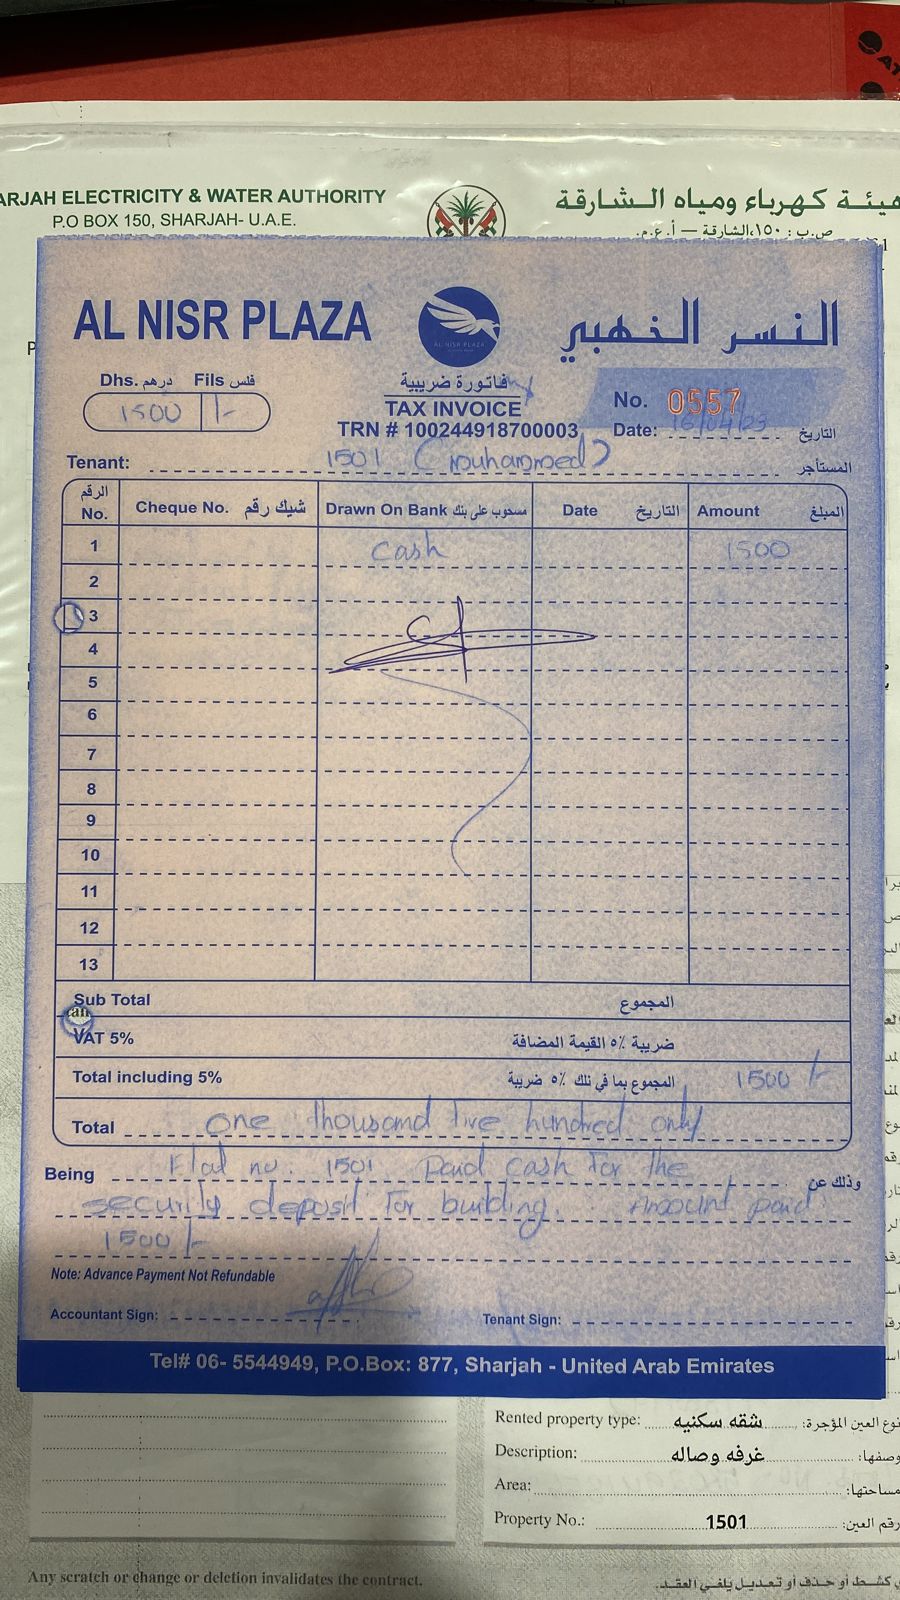 ARJAH ELECTRICITY & WATER AUTHORITY
هيئة كهرباء ومياه الشارقة
P.O BOX 150, SHARJAH- U.A.E.
ص.ب : ١٥٠،الشارقة – أ.ع.م.
AL NISR PLAZA
AL NISR PLAZA
النسر الذهبي
Dhs. درهم Fils فلس
1500 /-
فاتورة ضريبية
TAX INVOICE
TRN # 100244918700003
No. 0557
Date: 16/04/23 التاريخ
Tenant: 1501 (Muhammed) المستأجر
الرقم No. Cheque No. شيك رقم Drawn On Bank مسحوب على بنك Date التاريخ Amount المبلغ
1 Cash 1500
2
3
4
5
6
7
8
9
10
11
12
13
Sub Total المجموع
VAT 5% ضريبة ٥٪ القيمة المضافة
Total including 5% المجموع بما في ذلك ٥٪ ضريبة 1500 /-
Total One thousand five hundred only
Being Flat no. 1501 Paid cash for the وذلك عن
security deposit for building. Amount paid
1500 /-
Note: Advance Payment Not Refundable
Accountant Sign:
Tenant Sign:
Tel# 06- 5544949, P.O.Box: 877, Sharjah - United Arab Emirates
Rented property type: شقه سكنيه نوع العين المؤجرة:
Description: غرفه وصاله وصفها:
Area: مساحتها:
Property No.: 1501 رقم العين:
Any scratch or change or deletion invalidates the contract.
كشط أو حذف أو تعديل يلغي العقد.